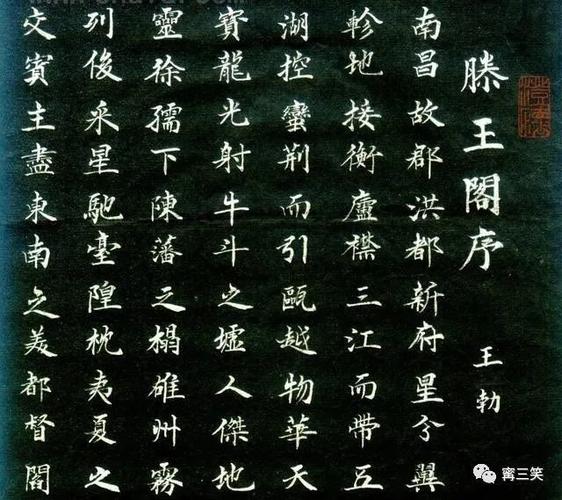 滕王閣序 王勃
南昌故郡洪都新府星分翼
軫地接衡廬襟三江而帶五
湖控蠻荊而引甌越物華天
寶龍光射牛斗之墟人傑地
靈徐孺下陳藩之榻雄州霧
列俊采星馳臺隍枕夷夏之
文賓主盡東南之美都督閻
寗三笑